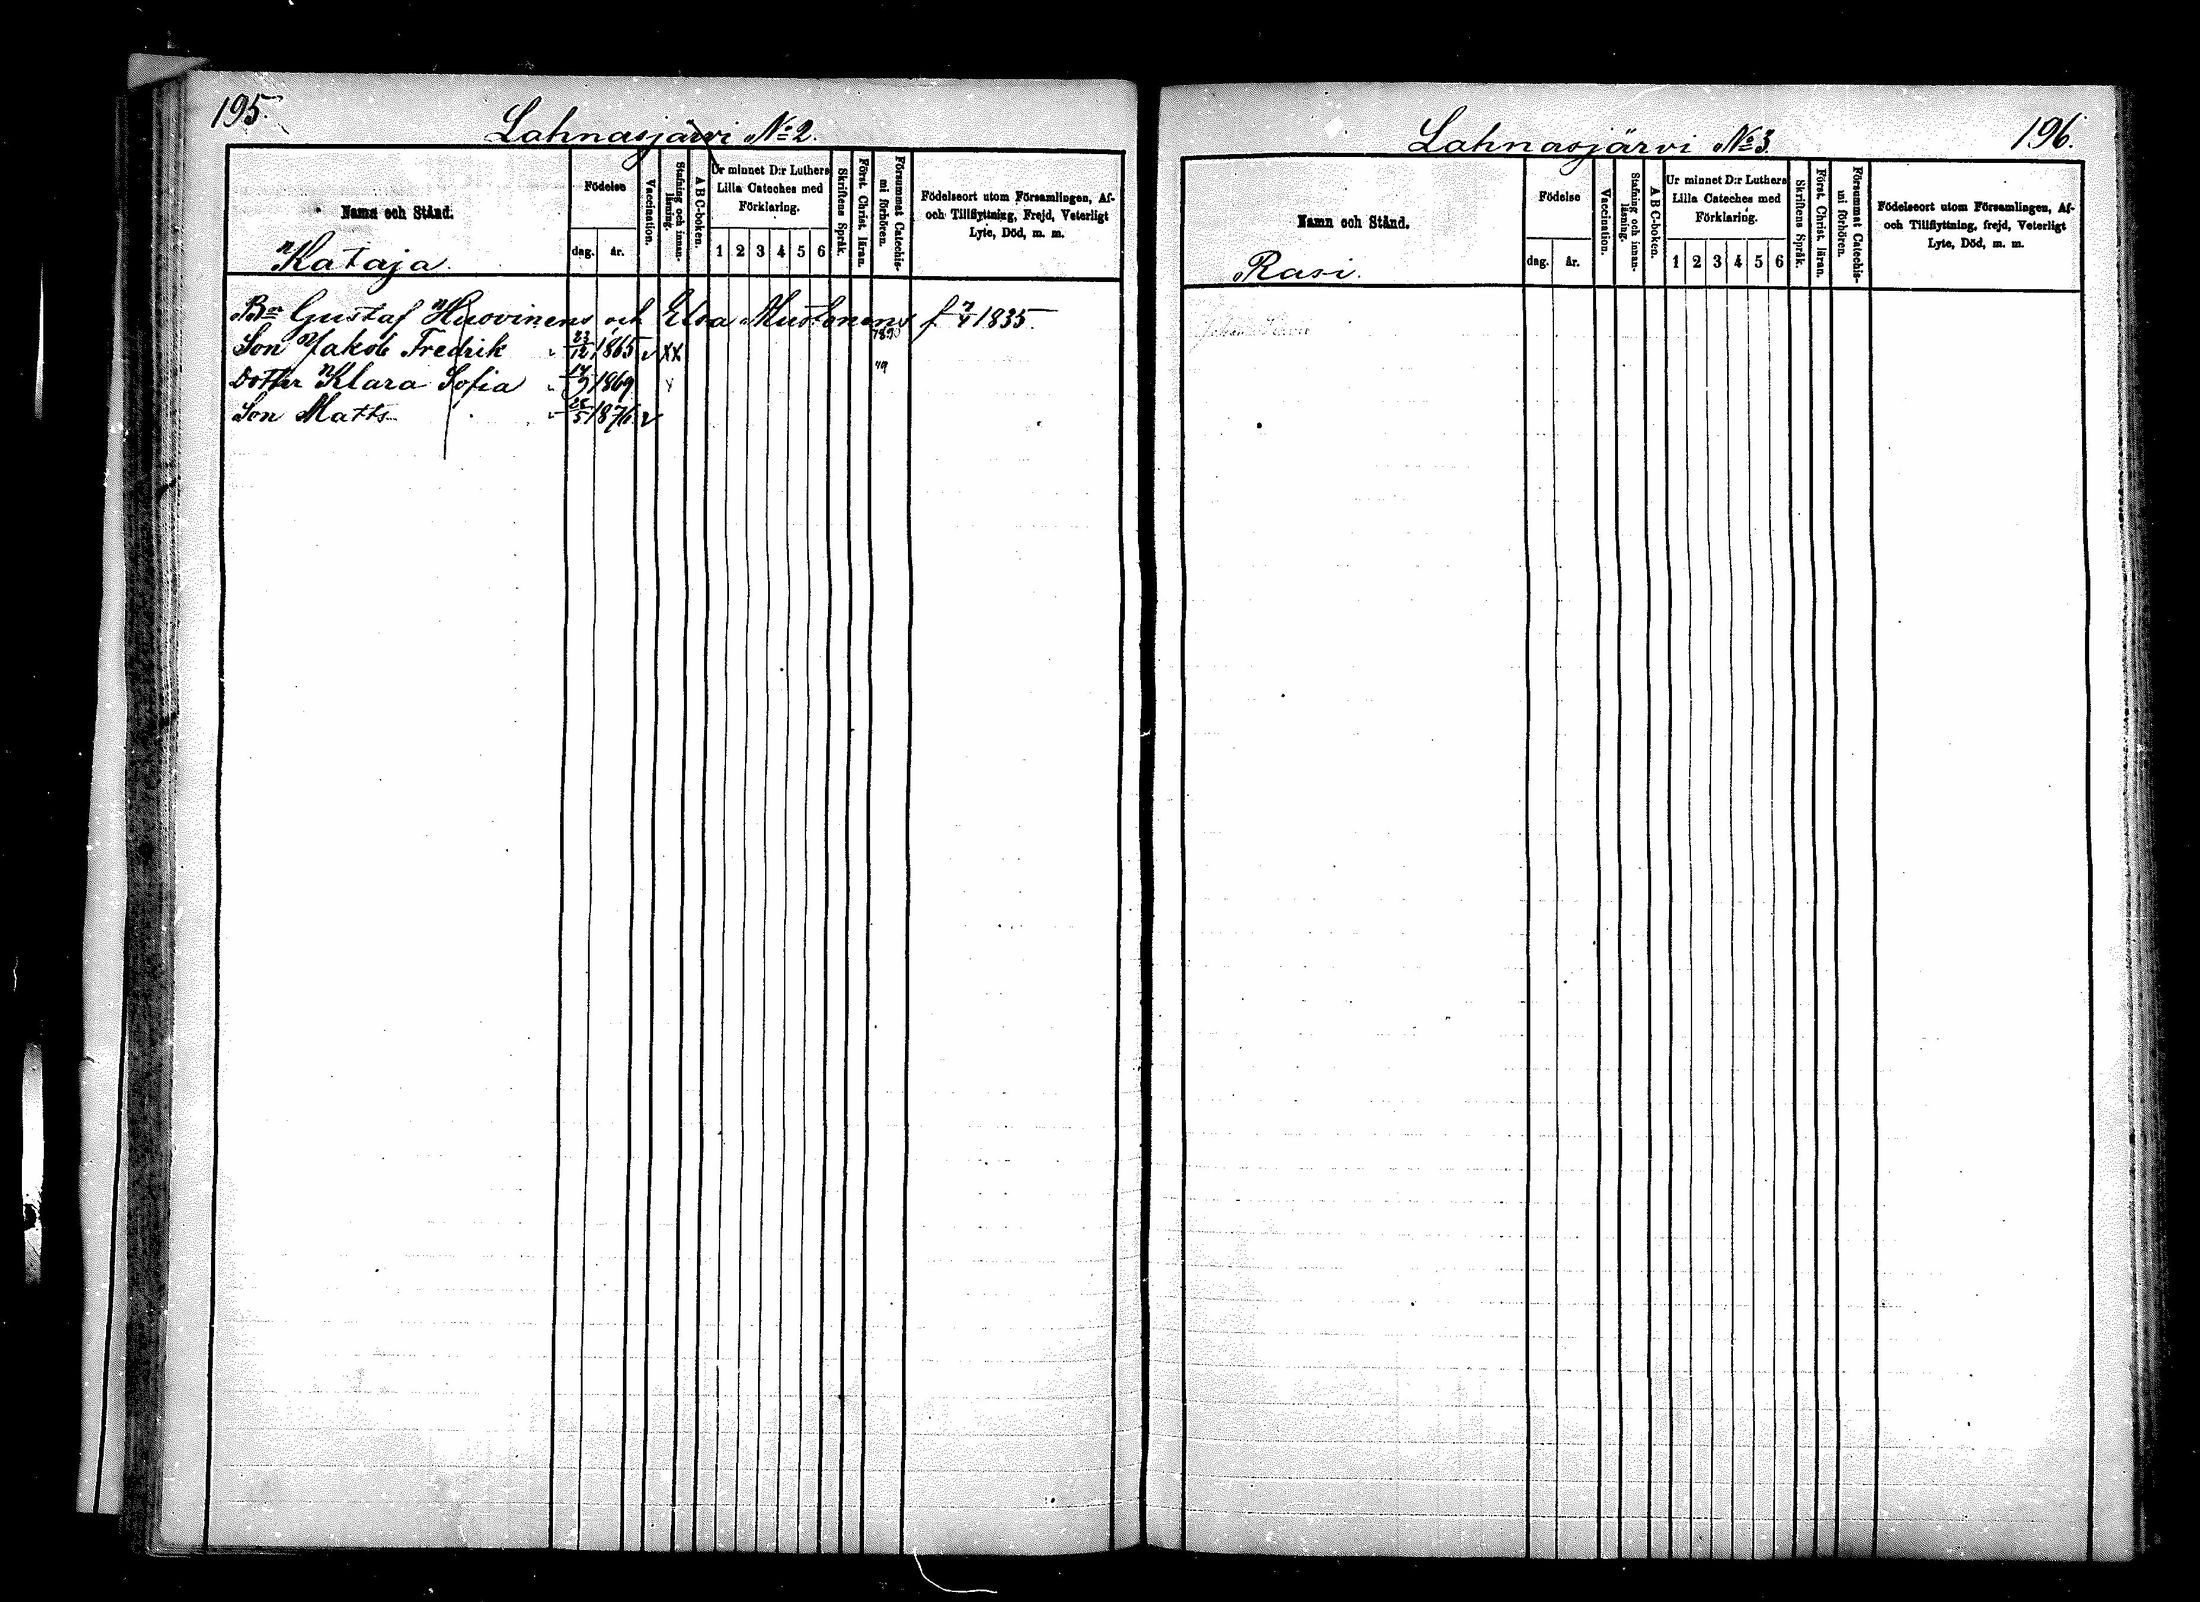 195.
Lahnasjärvi No 2.
Namn och Stånd.
Kataja.
Födelse
dag. år.
Vaccination.
Stafning och innan-
läsning.
A B C-boken.
Ur minnet D:r Luthers
Lilla Cateches med
Förklaring.
1 2 3 4 5 6
Skriftens Språk.
Först. Christ. läran.
Försummat Catechis-
mi förhören.
Födelseort utom Församlingen, Af-
och Tillflyttning, Frejd, Veterligt
Lyte, Död, m. m.
Bn Gustaf Huovinens och Elsa Mustonens f. 7/4 1835.
Son Jakob Fredrik 23/12 1865 v XX
Dotter Klara Sofia 14/9 1869 79
Son Matts 1876. v
Lahnasjärvi No 3.
196.
Namn och Stånd.
Rasi.
Födelse
dag. år.
Vaccination.
Stafning och innan-
läsning.
A B C-boken.
Ur minnet D:r Luthers
Lilla Cateches med
Förklaring.
1 2 3 4 5 6
Skriftens Språk.
Först. Christ. läran.
Försummat Catechis-
mi förhören.
Födelseort utom Församlingen, Af-
och Tillflyttning, frejd, Veterligt
Lyte, Död, m. m.